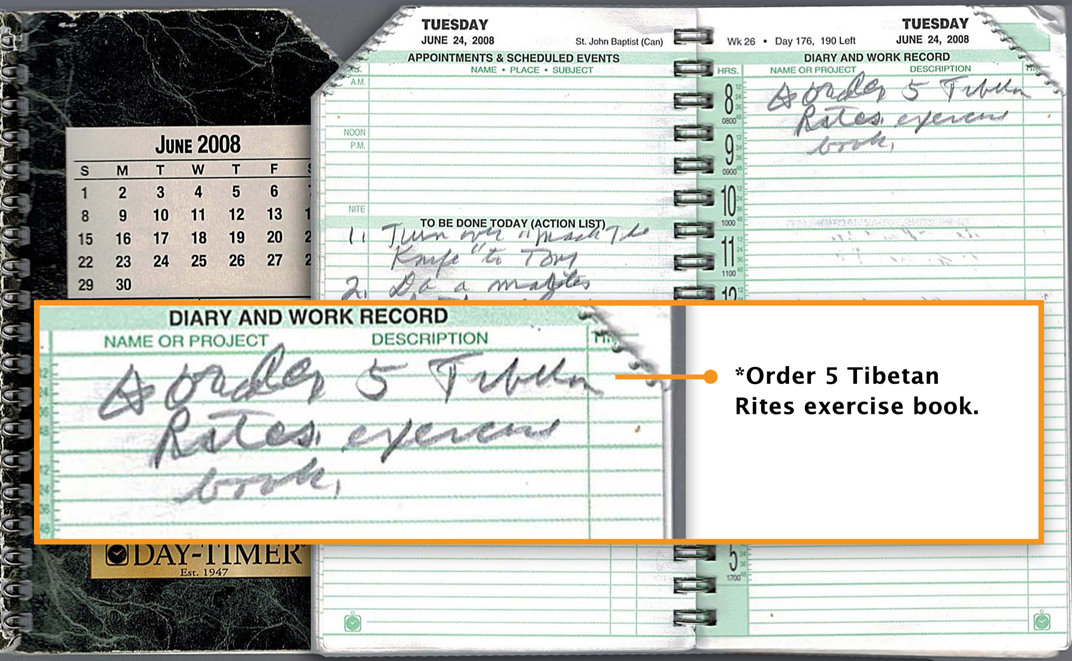 JUNE 2008
S M T W T F S
1 2 3 4 5 6 7
8 9 10 11 12 13
15 16 17 18 19 20
22 23 24 25 26 27
29 30
DAY-TIMER
Est. 1947
TUESDAY
JUNE 24, 2008 St. John Baptist (Can)
APPOINTMENTS & SCHEDULED EVENTS
NAME • PLACE • SUBJECT
A.M.
NOON
P.M.
NITE
TO BE DONE TODAY (ACTION LIST)
1. Turn over "Mack The
Knife" to Tony
2. Do a
TUESDAY
Wk 26 • Day 176, 190 Left JUNE 24, 2008
DIARY AND WORK RECORD
HRS. NAME OR PROJECT DESCRIPTION
8 order 5 Tibetan
0800 Rites exercise
9 book.
0900
10
1000
11
1100
12
5
1700
DIARY AND WORK RECORD
NAME OR PROJECT DESCRIPTION
order 5 Tibetan
Rites exercise
book.
*Order 5 Tibetan
Rites exercise book.